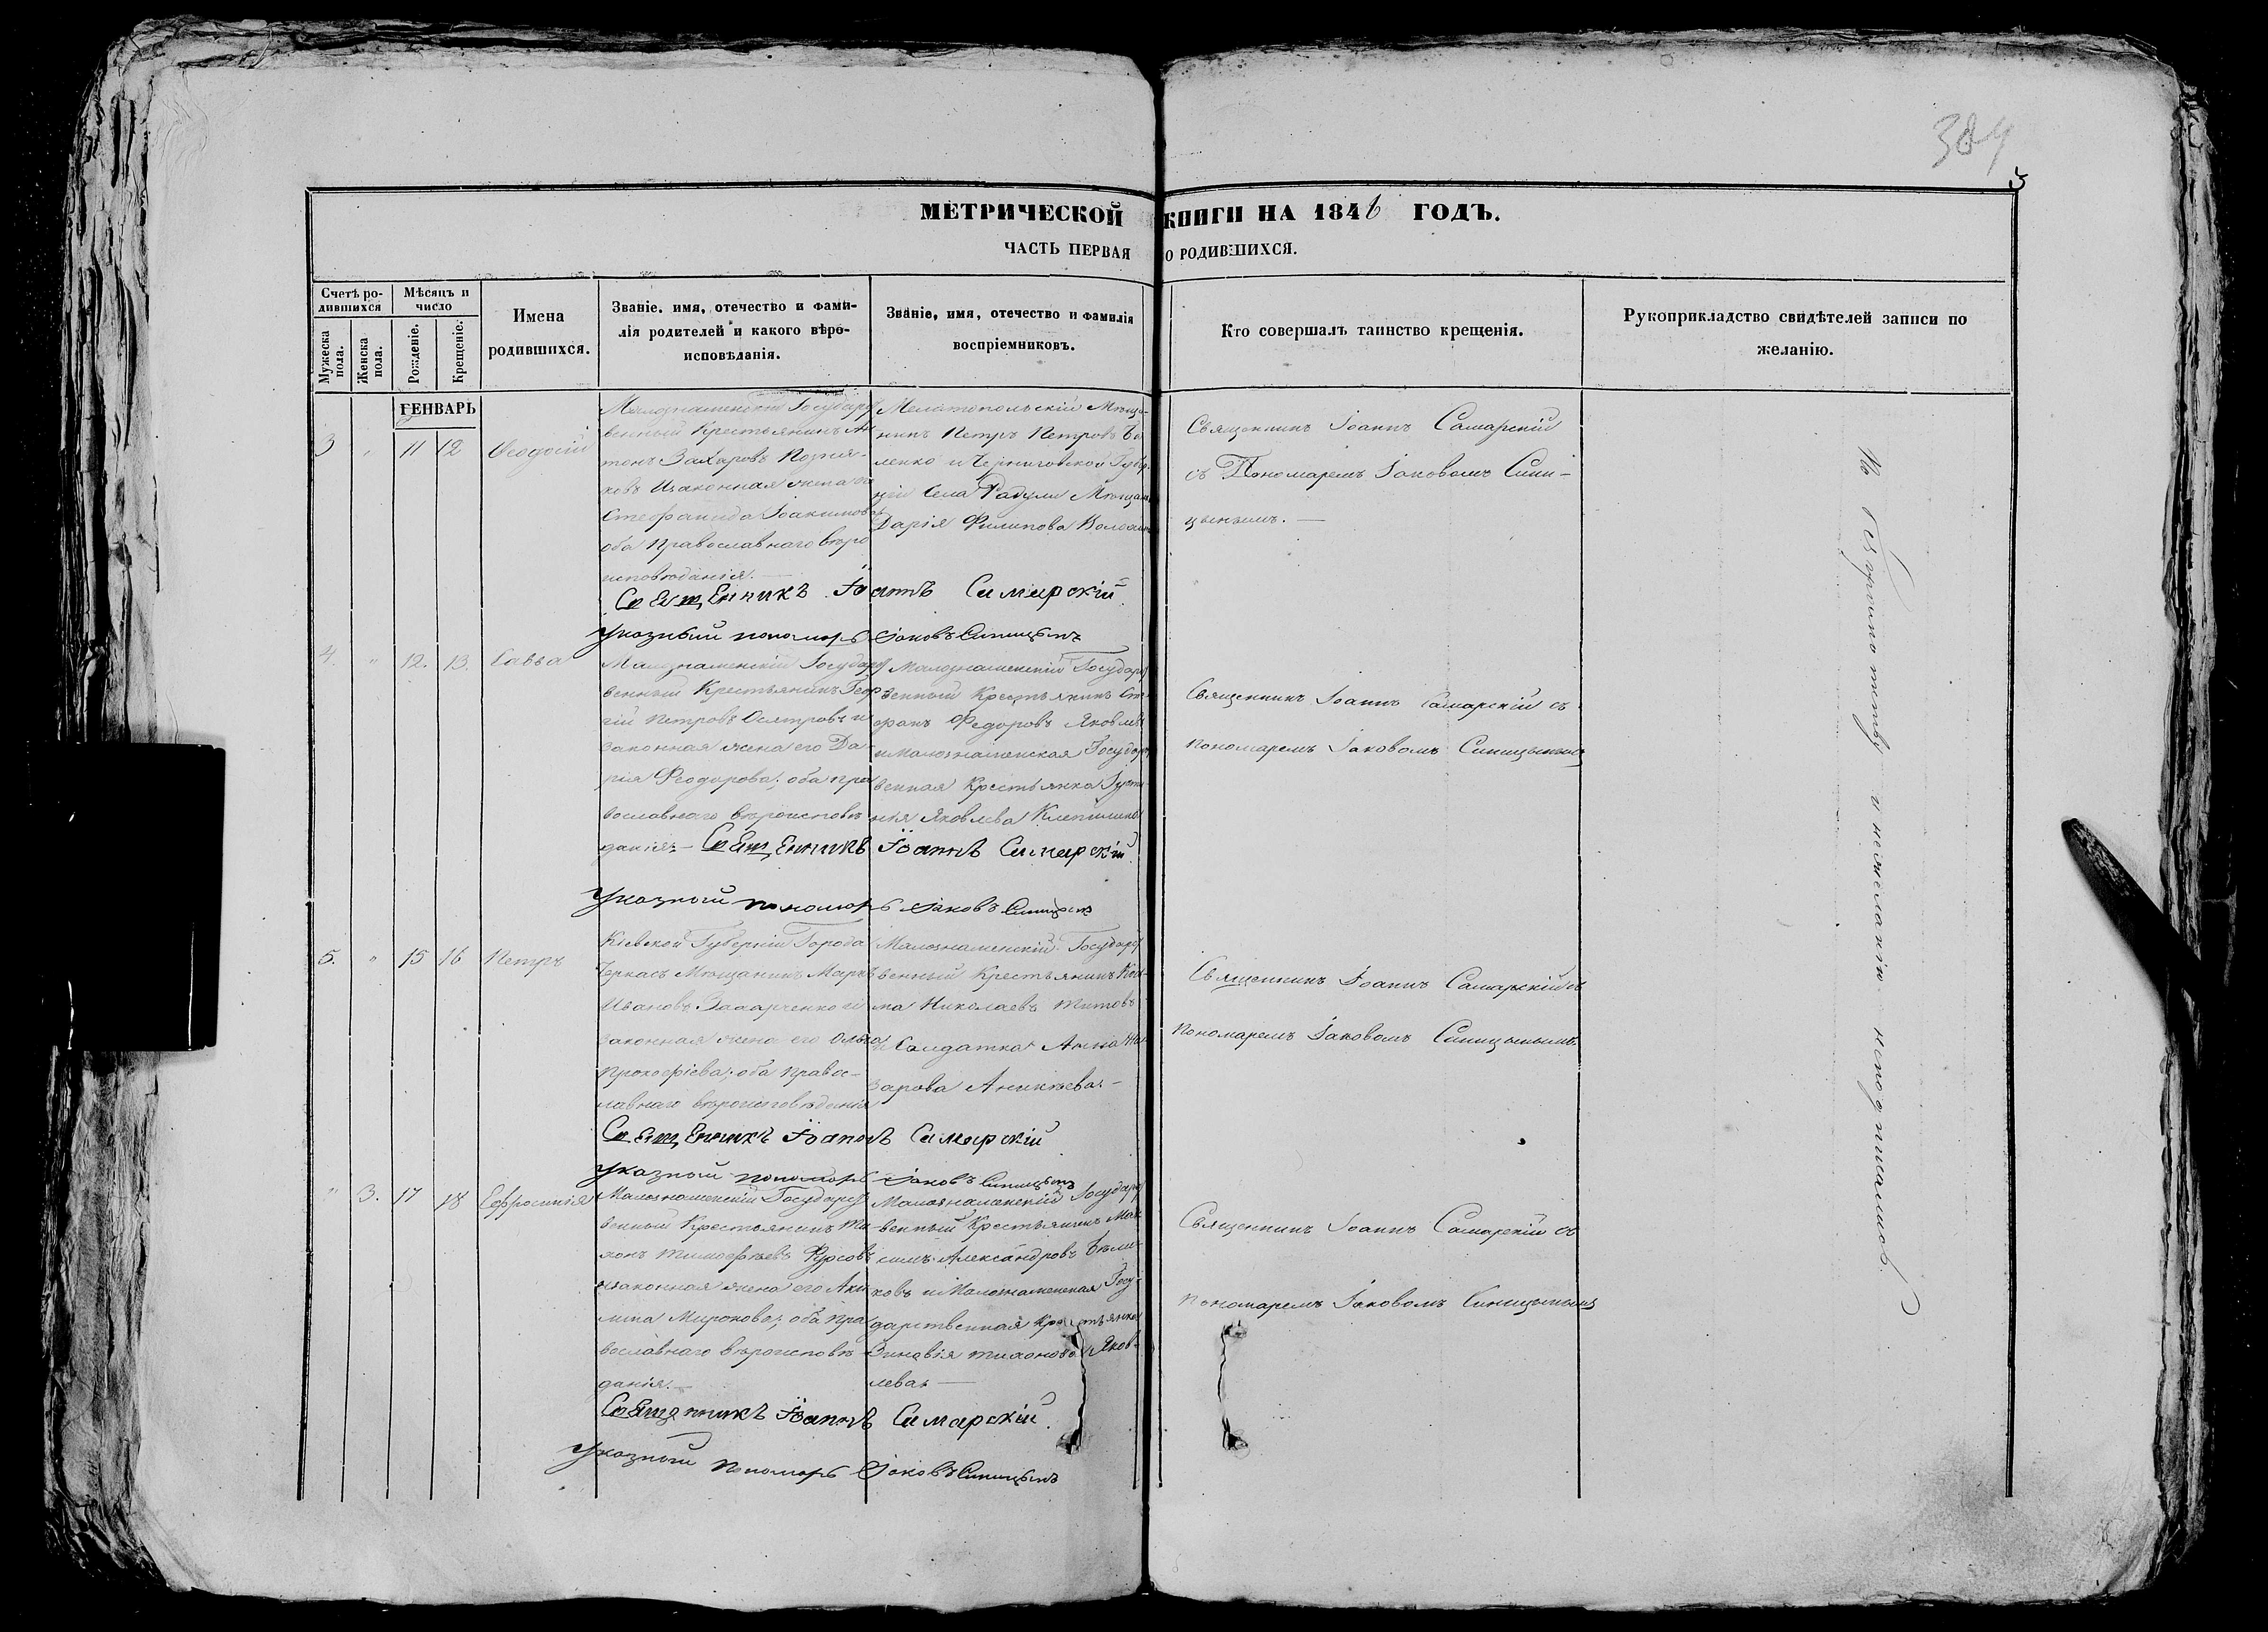 384
5
МЕТРИЧЕСКОЙ КНИГИ НА 1846 ГОДЪ.
ЧАСТЬ ПЕРВАЯ О РОДИВШИХСЯ.
Счетъ ро-
дившихся
Мѣсяцъ и
число
Мужеска
пола.
Женска
пола.
Рожденіе.
Крещеніе.
Имена
родившихся.
Званіе, имя, отечество и фами-
лія родителей и какого вѣро-
исповѣданія.
Званіе, имя, отечество и фамилія
воспріемниковъ.
Кто совершалъ таинство крещенія.
Рукоприкладство свидѣтелей записи по
желанію.
ГЕНВАРЬ
3 " 11 12 Ѳеодосій
Малознаменскій Государст
венный Крестьянинъ Ан
тонъ Захаровъ Позня-
ковъ Изаконная жена его
Стефанида Іоакимова
оба Православнаго вѣро
исповѣданія.—
Мелитопольскій Мѣща-
нинъ Петръ Петровъ
ленко и Черниговской Губер
ніи Села Радули Мѣщанка
Дарія Филипова
Священникъ Іоаннъ Самарскій
съ Пономаремъ Іаковомъ Сини-
цынымъ.—
Священникъ Іоаннъ Самарскій
Указный пономарь Іаковъ Синицынъ
4. " 12. 13. Савва
Малознаменскій Государст
венный Крестьянинъ Геор
гій Петровъ Осятровъ и
законная жена его Да
рія Феодорова; оба пра
вославнаго вѣроисповѣ
данія.—
Малознаменскій Государст
венный Крестьянинъ Сте
фанъ Федоровъ Яковлевъ
и Малознаменская Государст
венная Крестьянка
Яковлева
Священникъ Іоаннъ Самарскій съ
пономаремъ Іаковомъ Синицынымъ
Священникъ Іоаннъ Самарскій
Указный пономарь Іаковъ Синицынъ
5. " 15 16 Петръ
Кіевской Губерніи Города
Черкасъ Мѣщанинъ Маркъ
Ивановъ и
законная жена его Ольга
Прокофіева; оба Правос-
лавнаго вѣроисповѣданія
Малознаменскій Государст
венный Крестьянинъ Кось-
ма Николаевъ Титовъ
и Солдатка Анна На
зарова Аникѣева.—
Священникъ Іоаннъ Самарскій съ
Пономаремъ Іаковомъ Синицынымъ
Священникъ Іоаннъ Самарскій
Указный пономарь Іаковъ Синицынъ
" 3. 17 18 Ефросинія
Малознаменскій Государст
венный Крестьянинъ Ти
хонъ Тимофѣевъ Фурсовъ
изаконная жена его Аки
лина Миронова; оба пра
вославнаго вѣроисповѣ
данія.—
Малознаменскій Государст
венный Крестьянинъ Мак
симъ Александровъ Бѣли-
ковъ и Малознаменская Госу-
дарственная Крестьянка
Зиновія Тихонова Яков-
лева.—
Священникъ Іоаннъ Самарскій съ
пономаремъ Іаковомъ Синицынымъ
Священникъ Іоаннъ Самарскій
Указный пономарь Іаковъ Синицынъ
По безграмотству и нежеланію неподписались